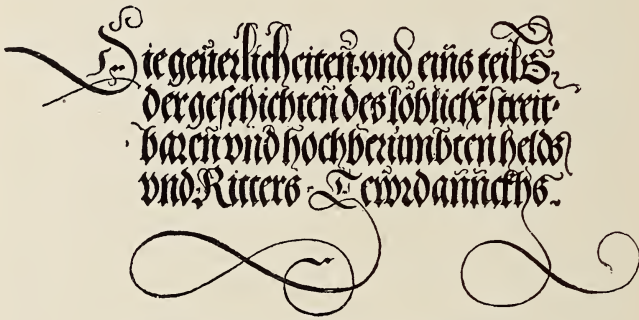 Die geüerlicheiten vnd eins teils
der geschichten des loblichē streit-
baren vnd hochberümbten helds
vnd Ritters Tewrdannckhs.